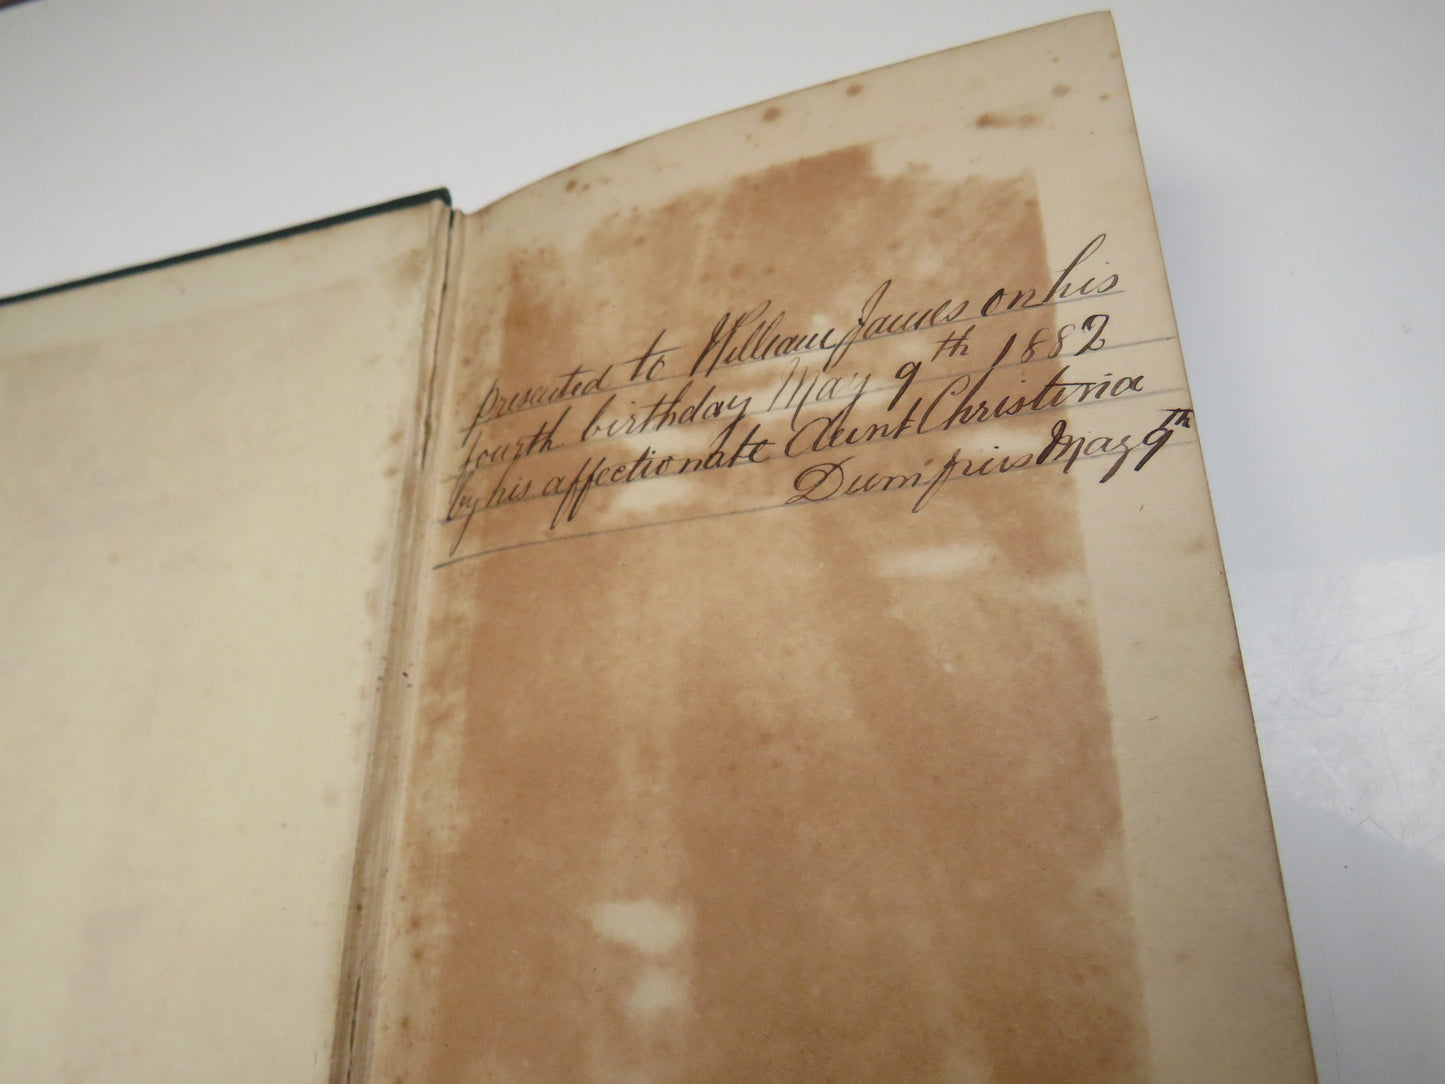 presented to William James on his
fourth birthday May 9th 1882
by his affectionate Aunt Christina
Dumfries May 9th